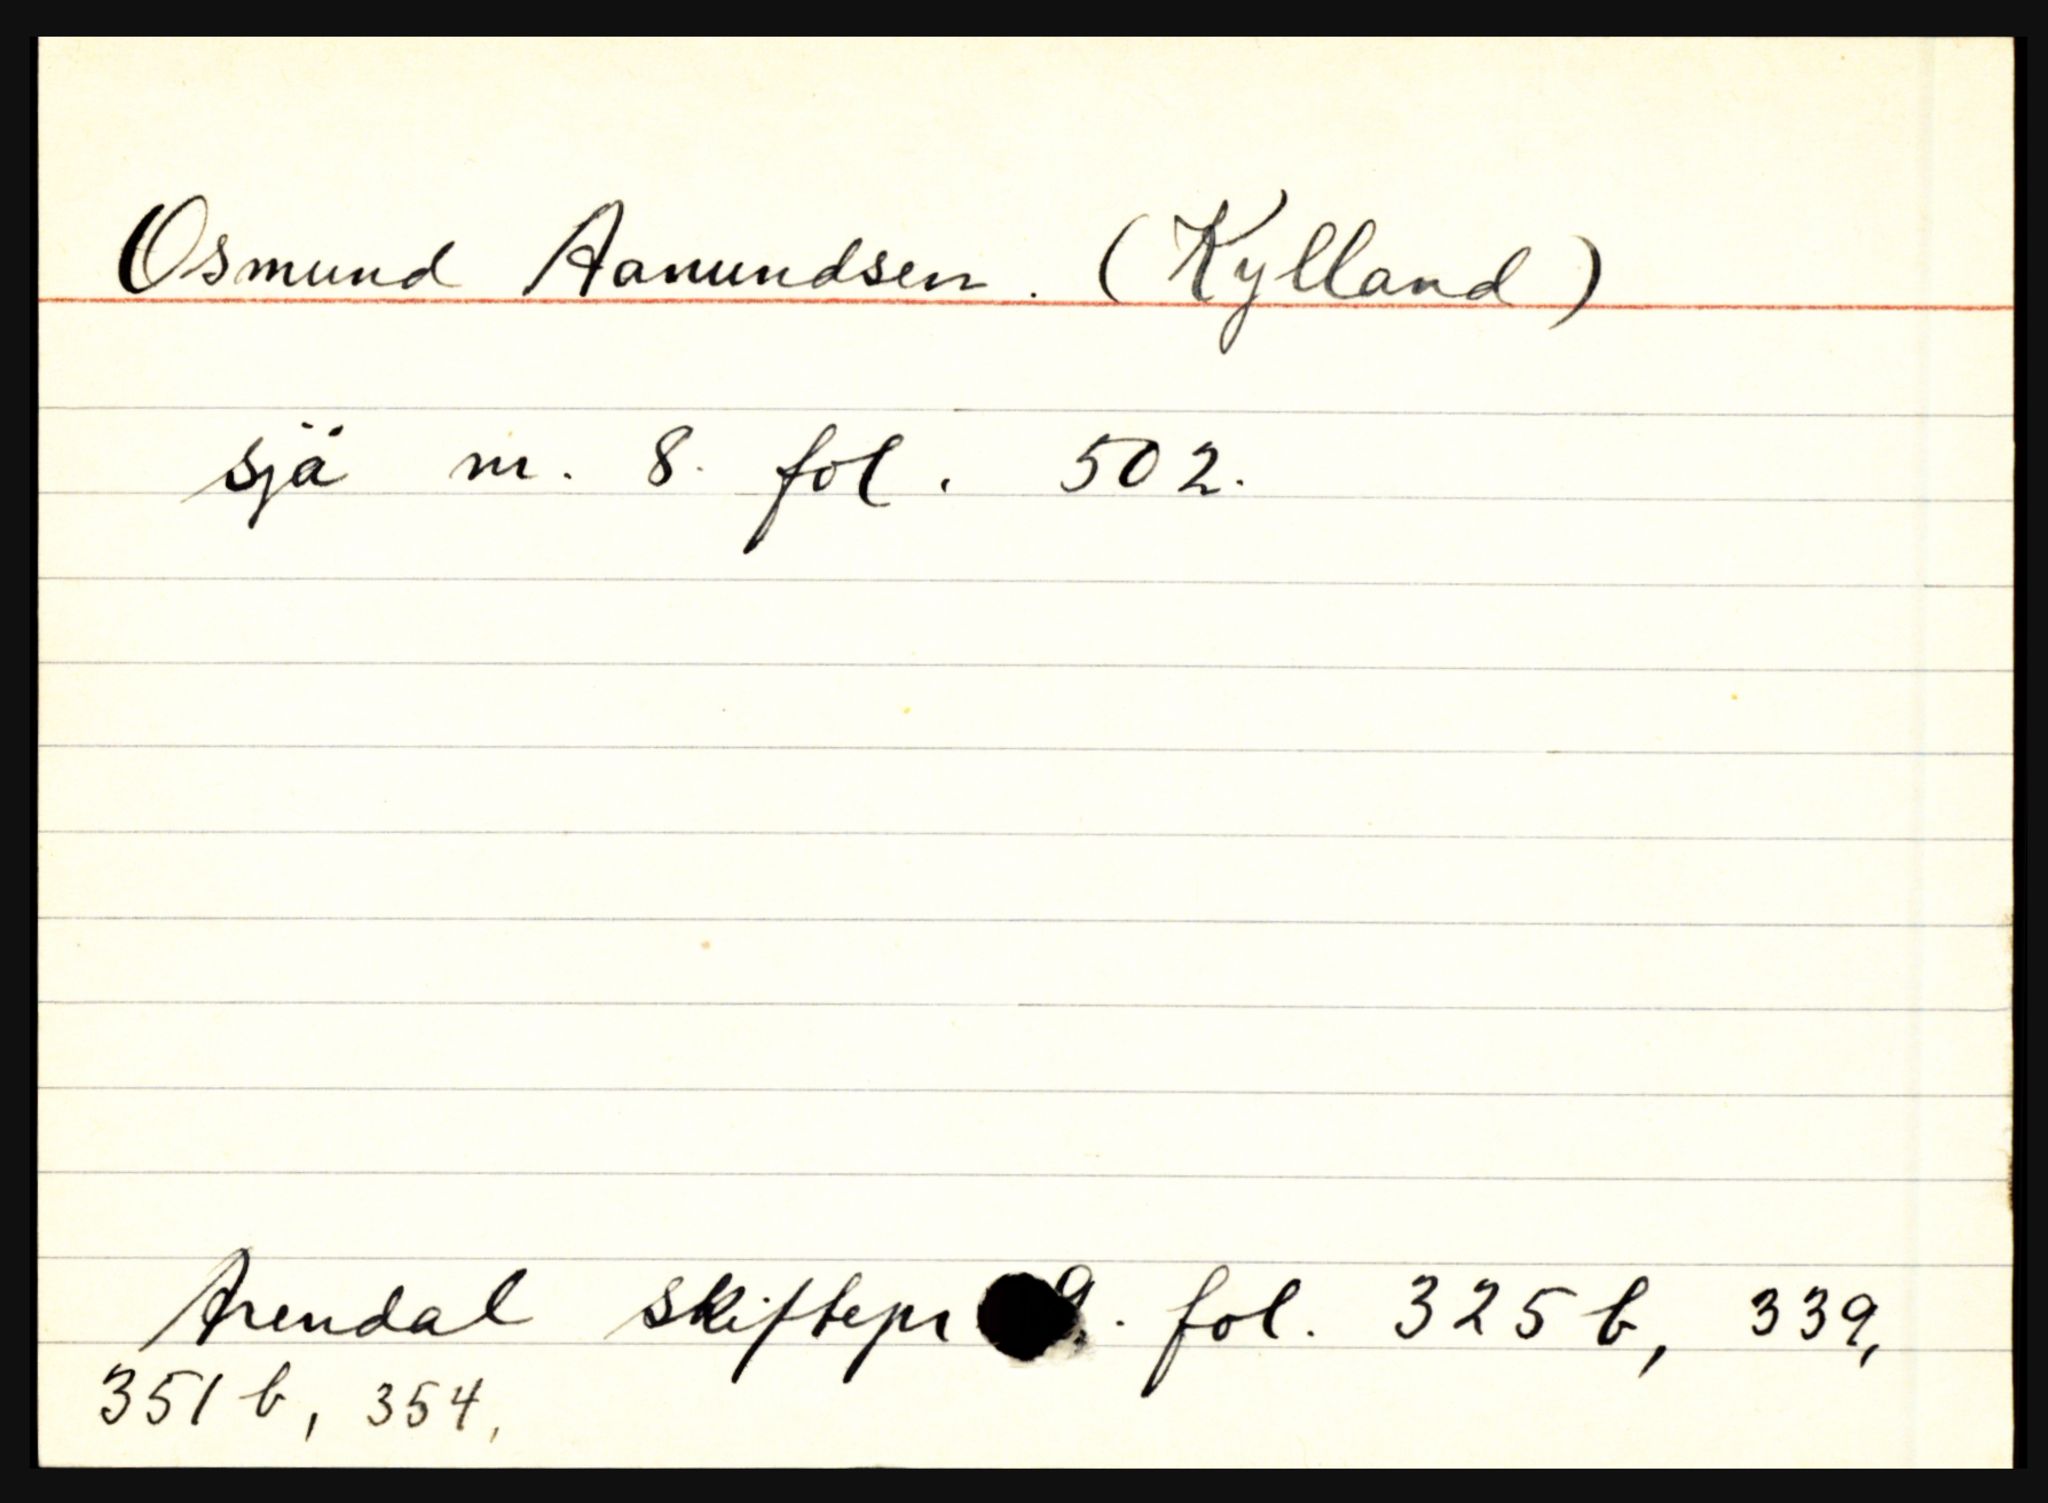 Osmund Aanundsen. (Kylland)
sjå nr. 8. fol. 502.
Arendal skiftepr 9. fol. 325 b, 339,
351 b, 354,